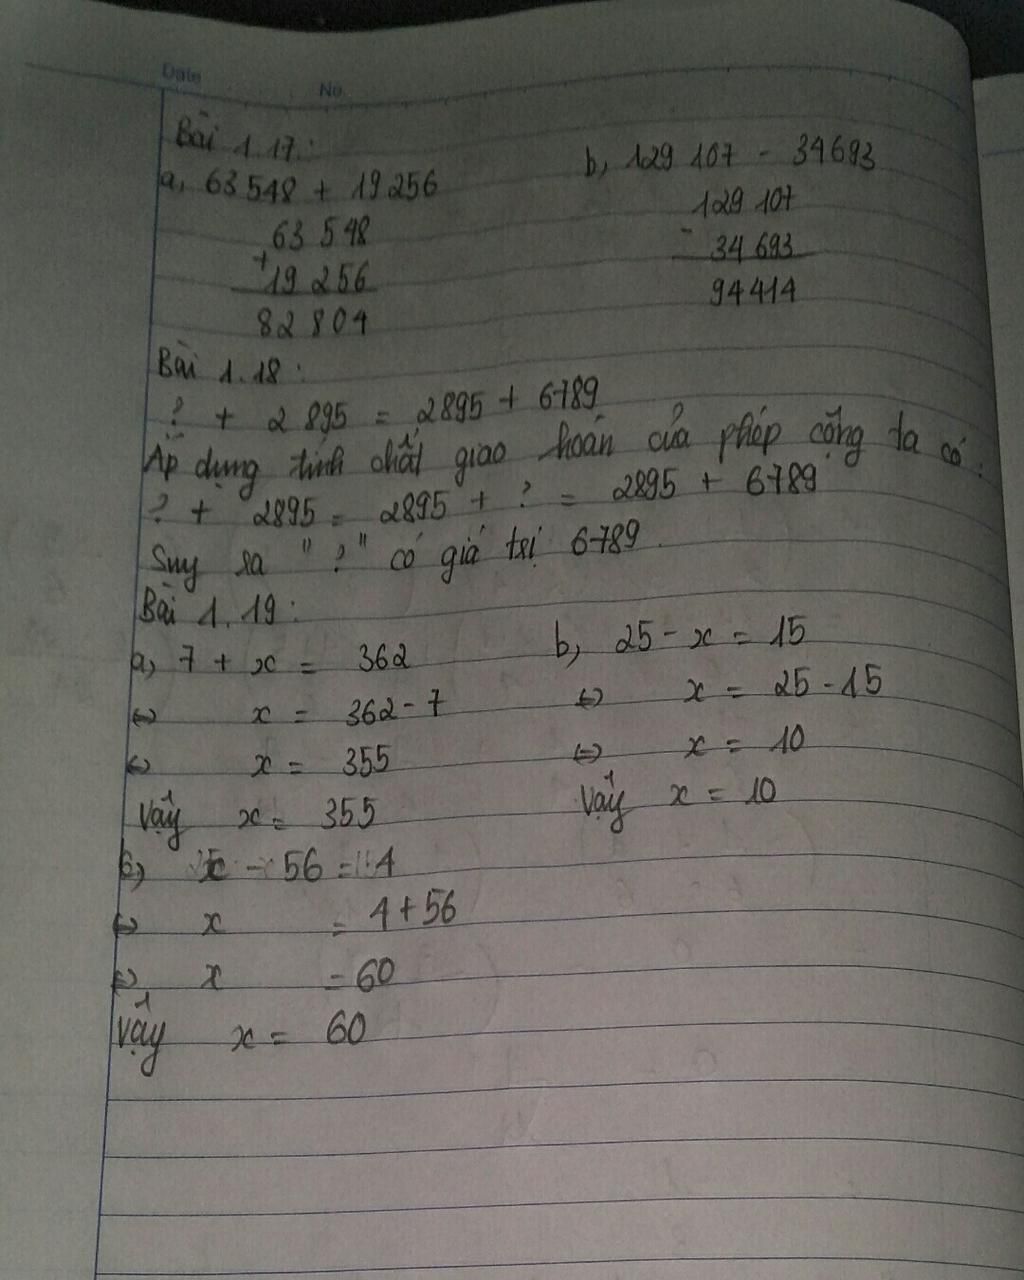 Date No.
Bài 1.17:
a, 63 548 + 19 256
63 548
+
19 256
82 804
b, 129 107 - 34693
129 107
-
34 693
94414
Bài 1.18:
? + 2 895 = 2895 + 6789
Áp dụng tính chất giao hoán của phép cộng ta có:
? + 2895 = 2895 + ? = 2895 + 6789
Suy ra "?" có giá trị 6789.
Bài 1.19:
a, 7 + x = 362
⇔ x = 362 - 7
⇔ x = 355
Vậy x = 355
b, 25 - x = 15
⇔ x = 25 - 15
⇔ x = 10
Vậy x = 10
c, x - 56 = 4
⇔ x = 4 + 56
⇔ x = 60
Vậy x = 60